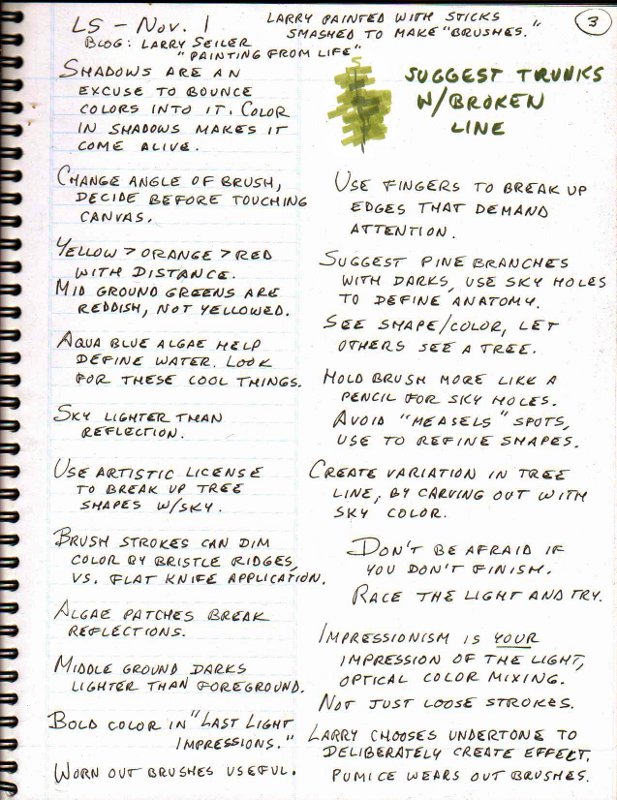 LS - Nov. 1
BLOG: LARRY SEILER
"PAINTING FROM LIFE"
LARRY PAINTED WITH STICKS
SMASHED TO MAKE "BRUSHES."
3
SHADOWS ARE AN
EXCUSE TO BOUNCE
COLORS INTO IT. COLOR
IN SHADOWS MAKES IT
COME ALIVE.
CHANGE ANGLE OF BRUSH,
DECIDE BEFORE TOUCHING
CANVAS.
YELLOW > ORANGE > RED
WITH DISTANCE.
MID GROUND GREENS ARE
REDDISH, NOT YELLOWED.
AQUA BLUE ALGAE HELP
DEFINE WATER. LOOK
FOR THESE COOL THINGS.
SKY LIGHTER THAN
REFLECTION.
USE ARTISTIC LICENSE
TO BREAK UP TREE
SHAPES W/SKY.
BRUSH STROKES CAN DIM
COLOR BY BRISTLE RIDGES,
VS. FLAT KNIFE APPLICATION.
ALGAE PATCHES BREAK
REFLECTIONS.
MIDDLE GROUND DARKS
LIGHTER THAN FOREGROUND.
BOLD COLOR IN "LAST LIGHT
IMPRESSIONS."
WORN OUT BRUSHES USEFUL.
SUGGEST TRUNKS
W/BROKEN
LINE
USE FINGERS TO BREAK UP
EDGES THAT DEMAND
ATTENTION.
SUGGEST PINE BRANCHES
WITH DARKS, USE SKY HOLES
TO DEFINE ANATOMY.
SEE SHAPE/COLOR, LET
OTHERS SEE A TREE.
HOLD BRUSH MORE LIKE A
PENCIL FOR SKY HOLES.
AVOID "MEASELS" SPOTS,
USE TO REFINE SHAPES.
CREATE VARIATION IN TREE
LINE, BY CARVING OUT WITH
SKY COLOR.
DON'T BE AFRAID IF
YOU DON'T FINISH.
RACE THE LIGHT AND TRY.
IMPRESSIONISM IS YOUR
IMPRESSION OF THE LIGHT,
OPTICAL COLOR MIXING.
NOT JUST LOOSE STROKES.
LARRY CHOOSES UNDERTONE TO
DELIBERATELY CREATE EFFECT.
PUMICE WEARS OUT BRUSHES.